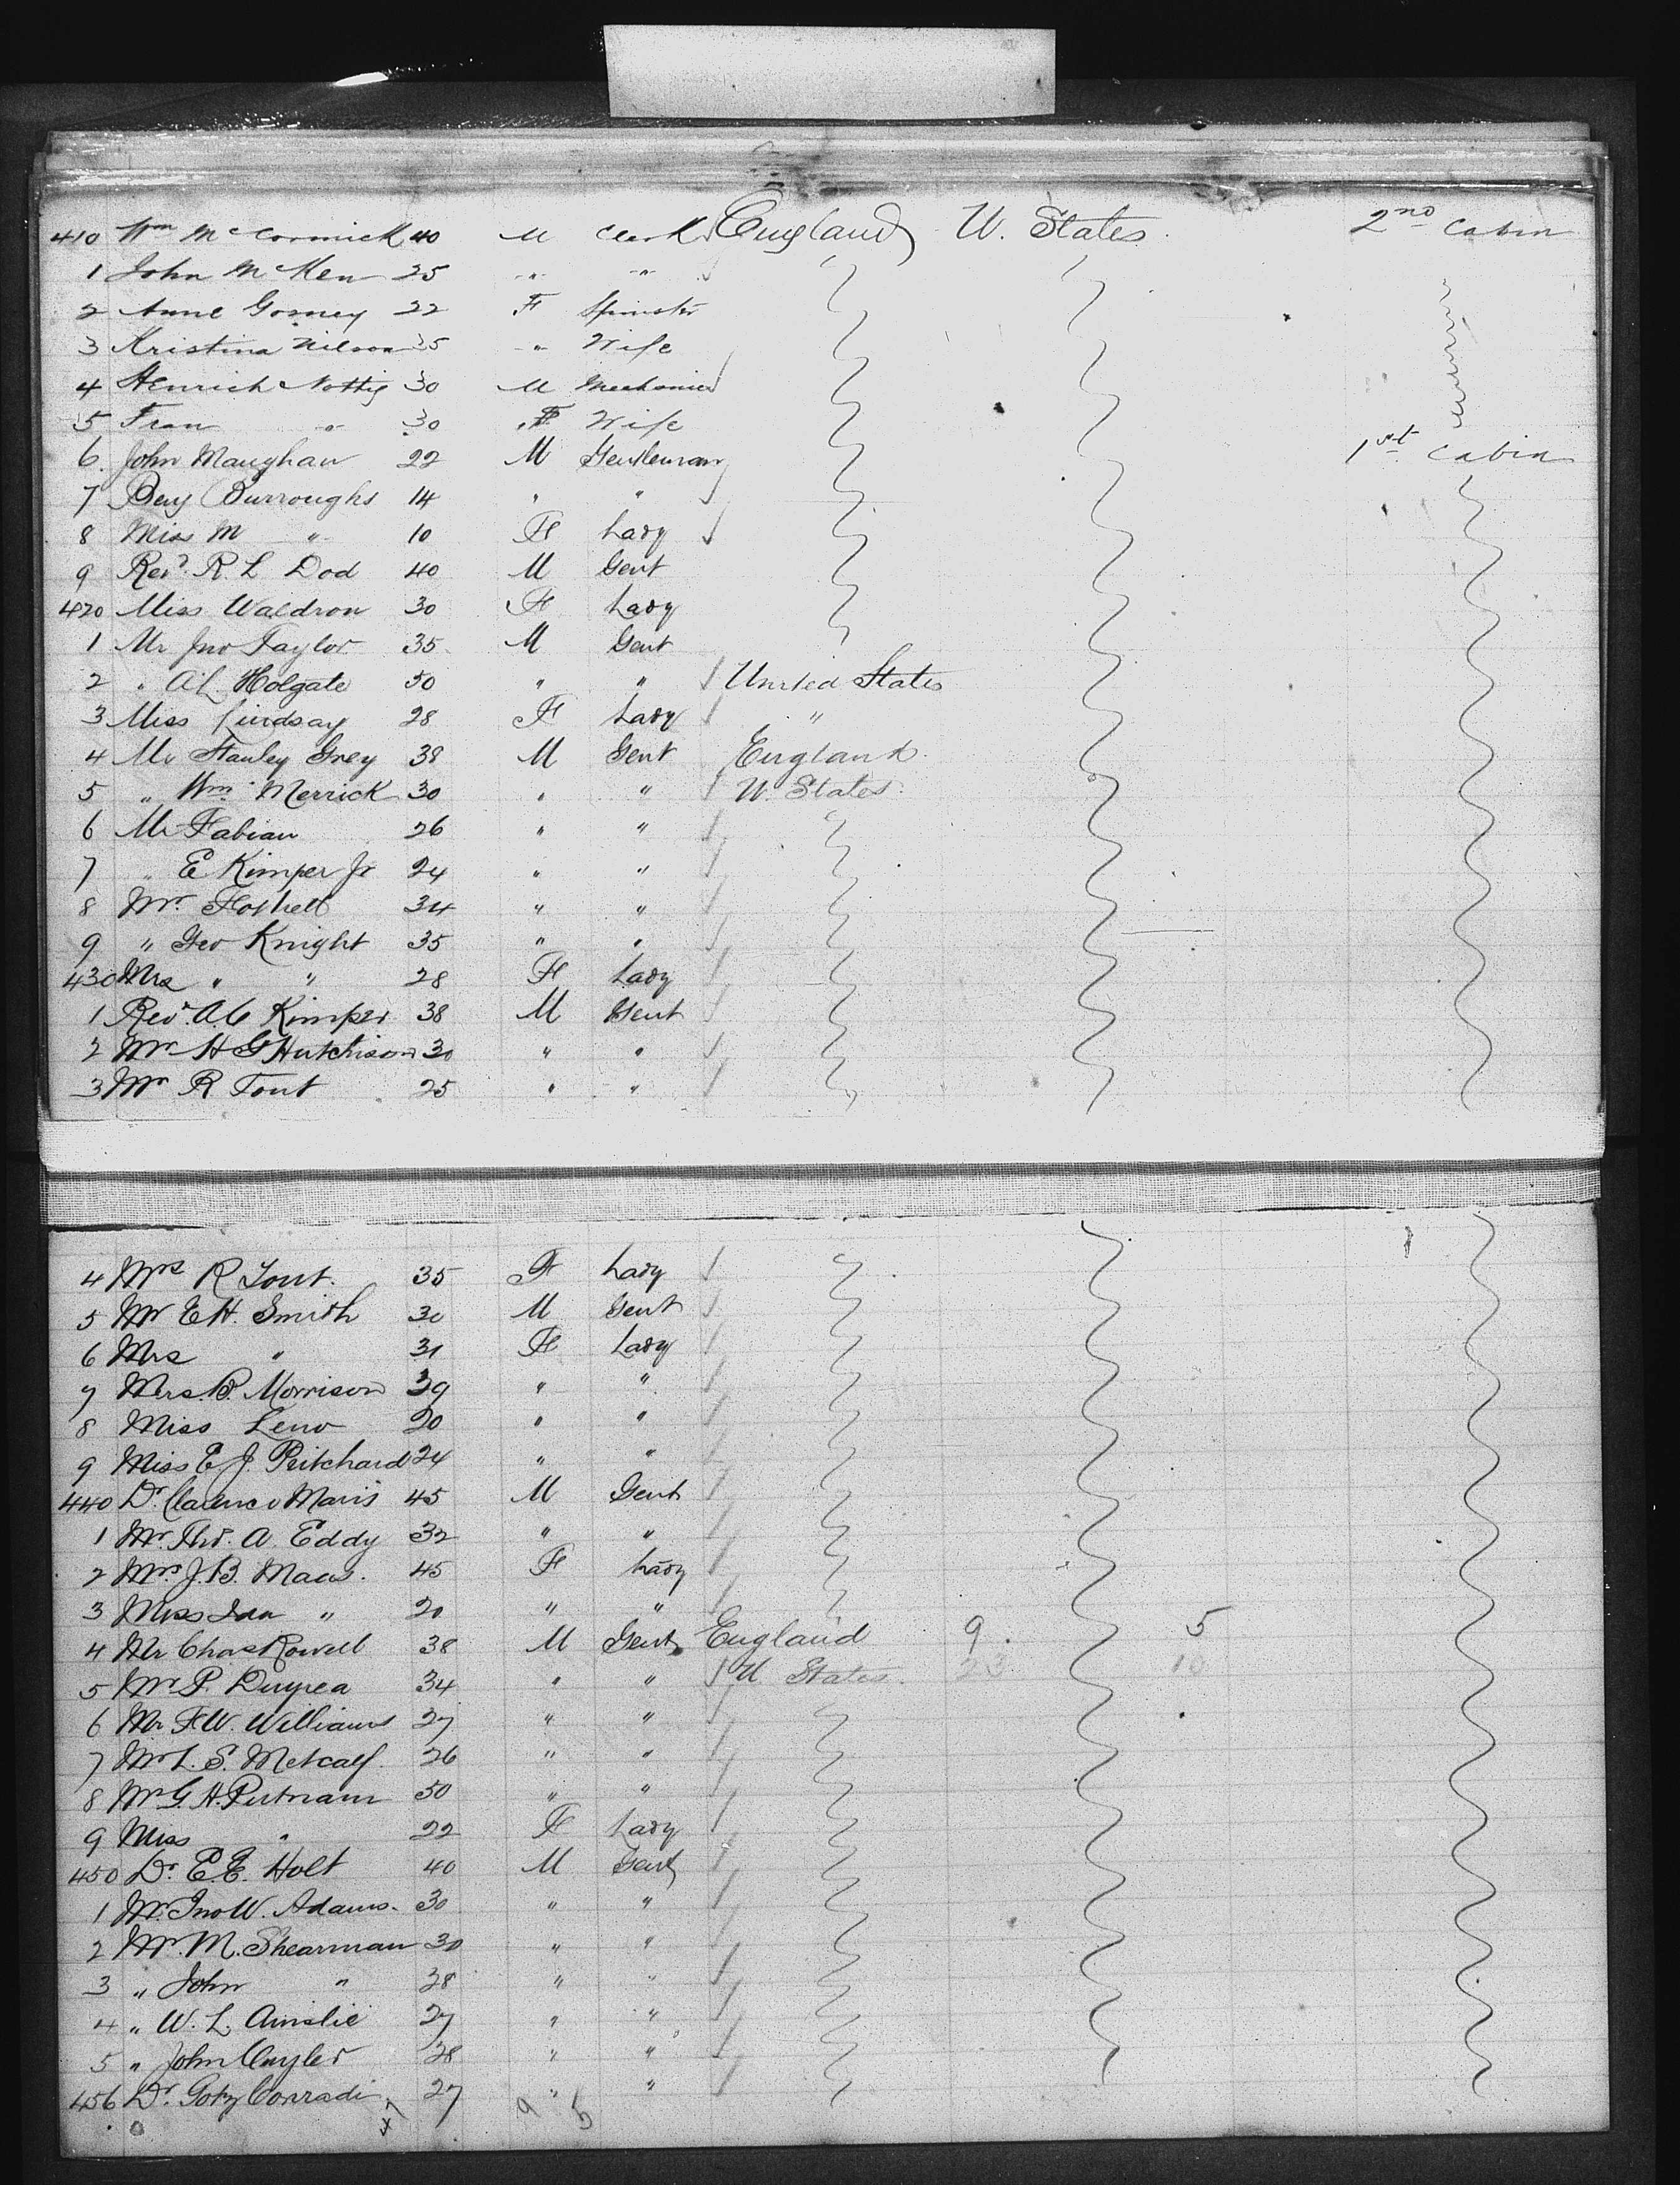 410 Wm McCormick 40 M Clerk England U. States 2nd Cabin
1 John McKen 25 " "
2 Anne Gorney 22 F Spinster
3 Kristina Nilson 35 " Wife
4 Henrich Nottig 30 M Mechanic
5 Frau " 30 F Wife
6. John Maughan 22 M Gentleman 1st Cabin
7 Benj Burroughs 14 " "
8 Miss M " 10 F Lady
9 Revd. R. L Dod 40 M Gent
420 Miss Waldron 30 F Lady
1 Mr Jno Taylor 35 M Gent
2 " A L Holgate 50 " " United States
3 Miss Lindsay 28 F Lady "
4 Mr Stanley Grey 38 M Gent England
5 " Wm Merrick 30 " " U. States
6 Mr Fabian 26 " "
7 " E Kimper Jr 24 " "
8 Mr. 34 " "
9 " Geo Knight 35 " "
430 Mrs " " 28 F Lady
1 Revd. A C Kimper 38 M Gent
2 Mr H G Hutchison 30 " "
3 Mr R Tont 25 " "
4 Mrs R Tont. 35 F Lady
5 Mr E H. Smith 30 M Gent
6 Mrs " 31 F Lady
7 Mrs. B. Morrison 39 " "
8 Miss Leno 20 " "
9 Miss E. J. Pritchard 24 " "
440 Dr. Clarence Maris 45 M Gent
1 Mr. Thd. A Eddy 32 " "
2 Mrs J. B. Maas. 45 F Lady
3 Miss Ida " 20 " "
4 Mr Chas Rowell 38 M Gent England 9. 5
5 Mr P. Duyrea 34 " " U States. 23 10
6 Mr F W. Williams 27 " "
7 Mr L. S. Metcalf. 26 " "
8 Mr G. H. Putnam 50 " "
9 Miss " 22 F Lady
450 Dr. E. E. Holt 40 M Gent
1 Mr. Jno W. Adams. 30 " "
2 Mr. M. Shearman 30 " "
3 " John " 28 " "
4 " W. L. Ainslie 27 " "
5 " John Cuyler 28 " "
456 Dr. Gotz Conradi 27 " "
9 5